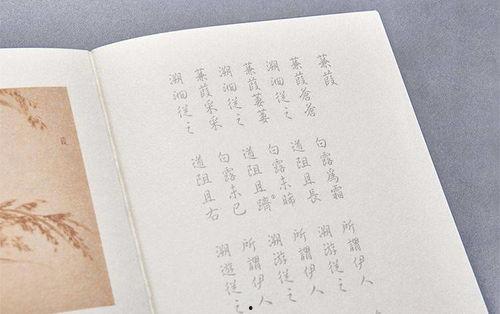 蒹葭
蒹葭蒼蒼 白露為霜 所謂伊人
溯洄從之 道阻且長 溯游從之
蒹葭萋萋 白露未晞 所謂伊人
溯洄從之 道阻且躋 溯游從之
蒹葭采采 白露未已 所謂伊人
溯洄從之 道阻且右 溯游從之